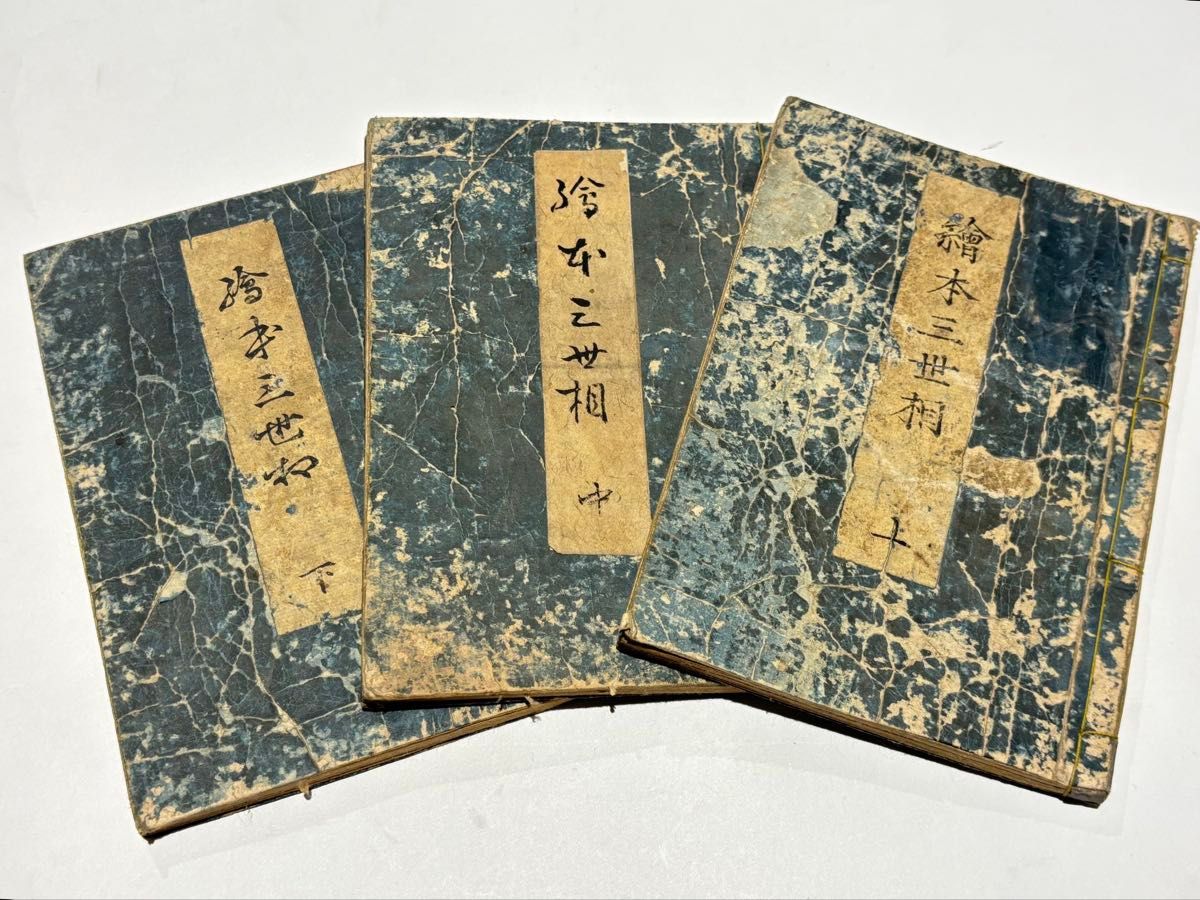 繪本三世相
上
繪本三世相
中
繪本三世相
下